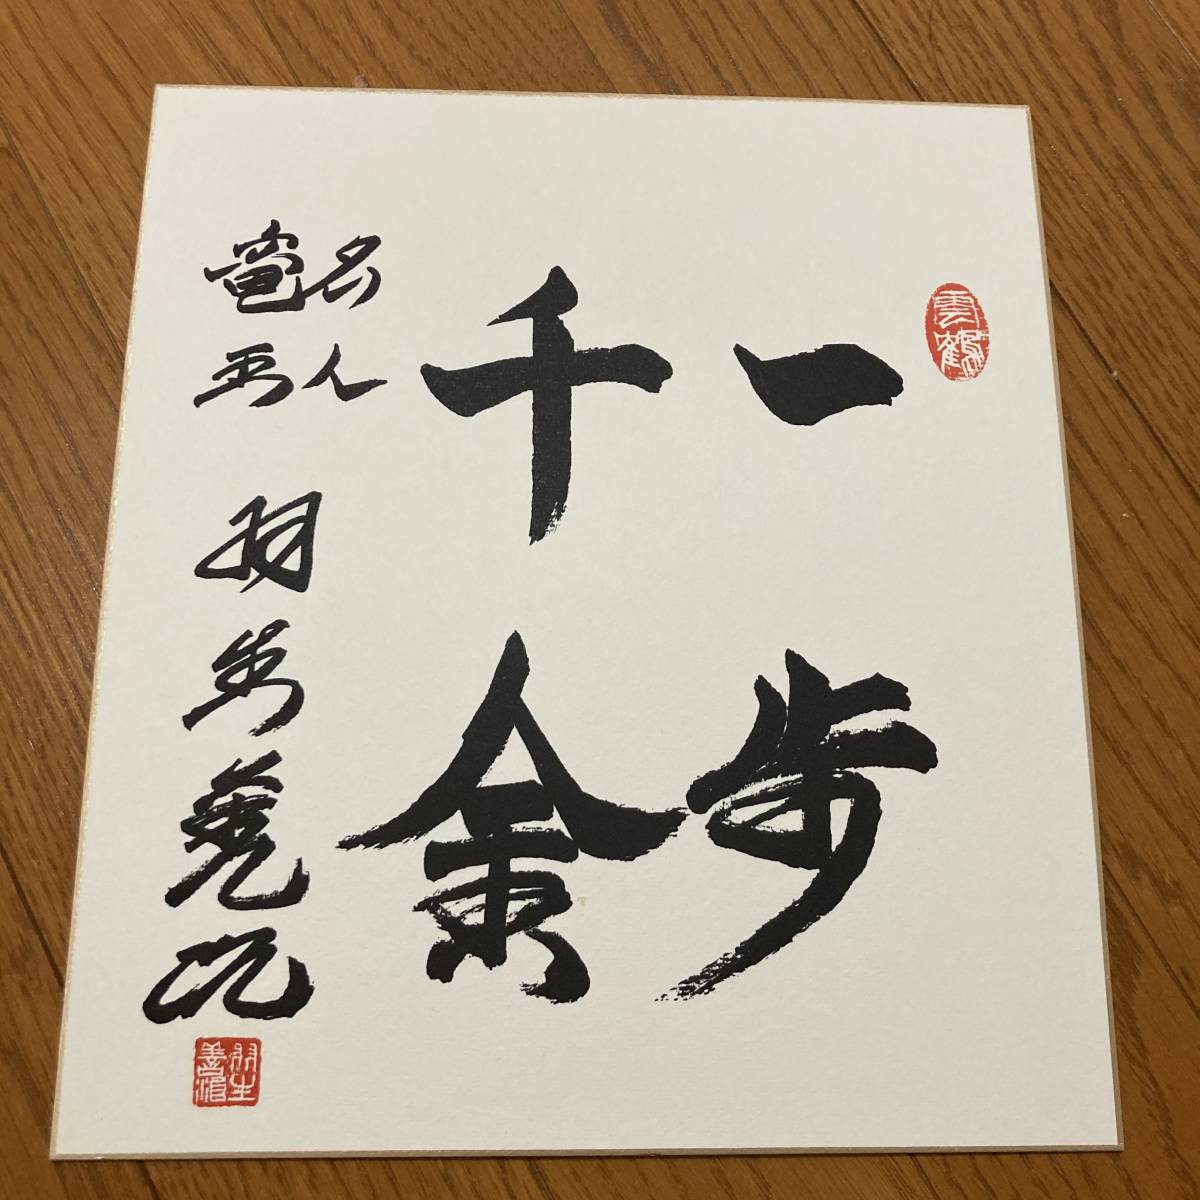 雲鶴
一歩
千金
名人
竜王
羽生善治
羽生善治